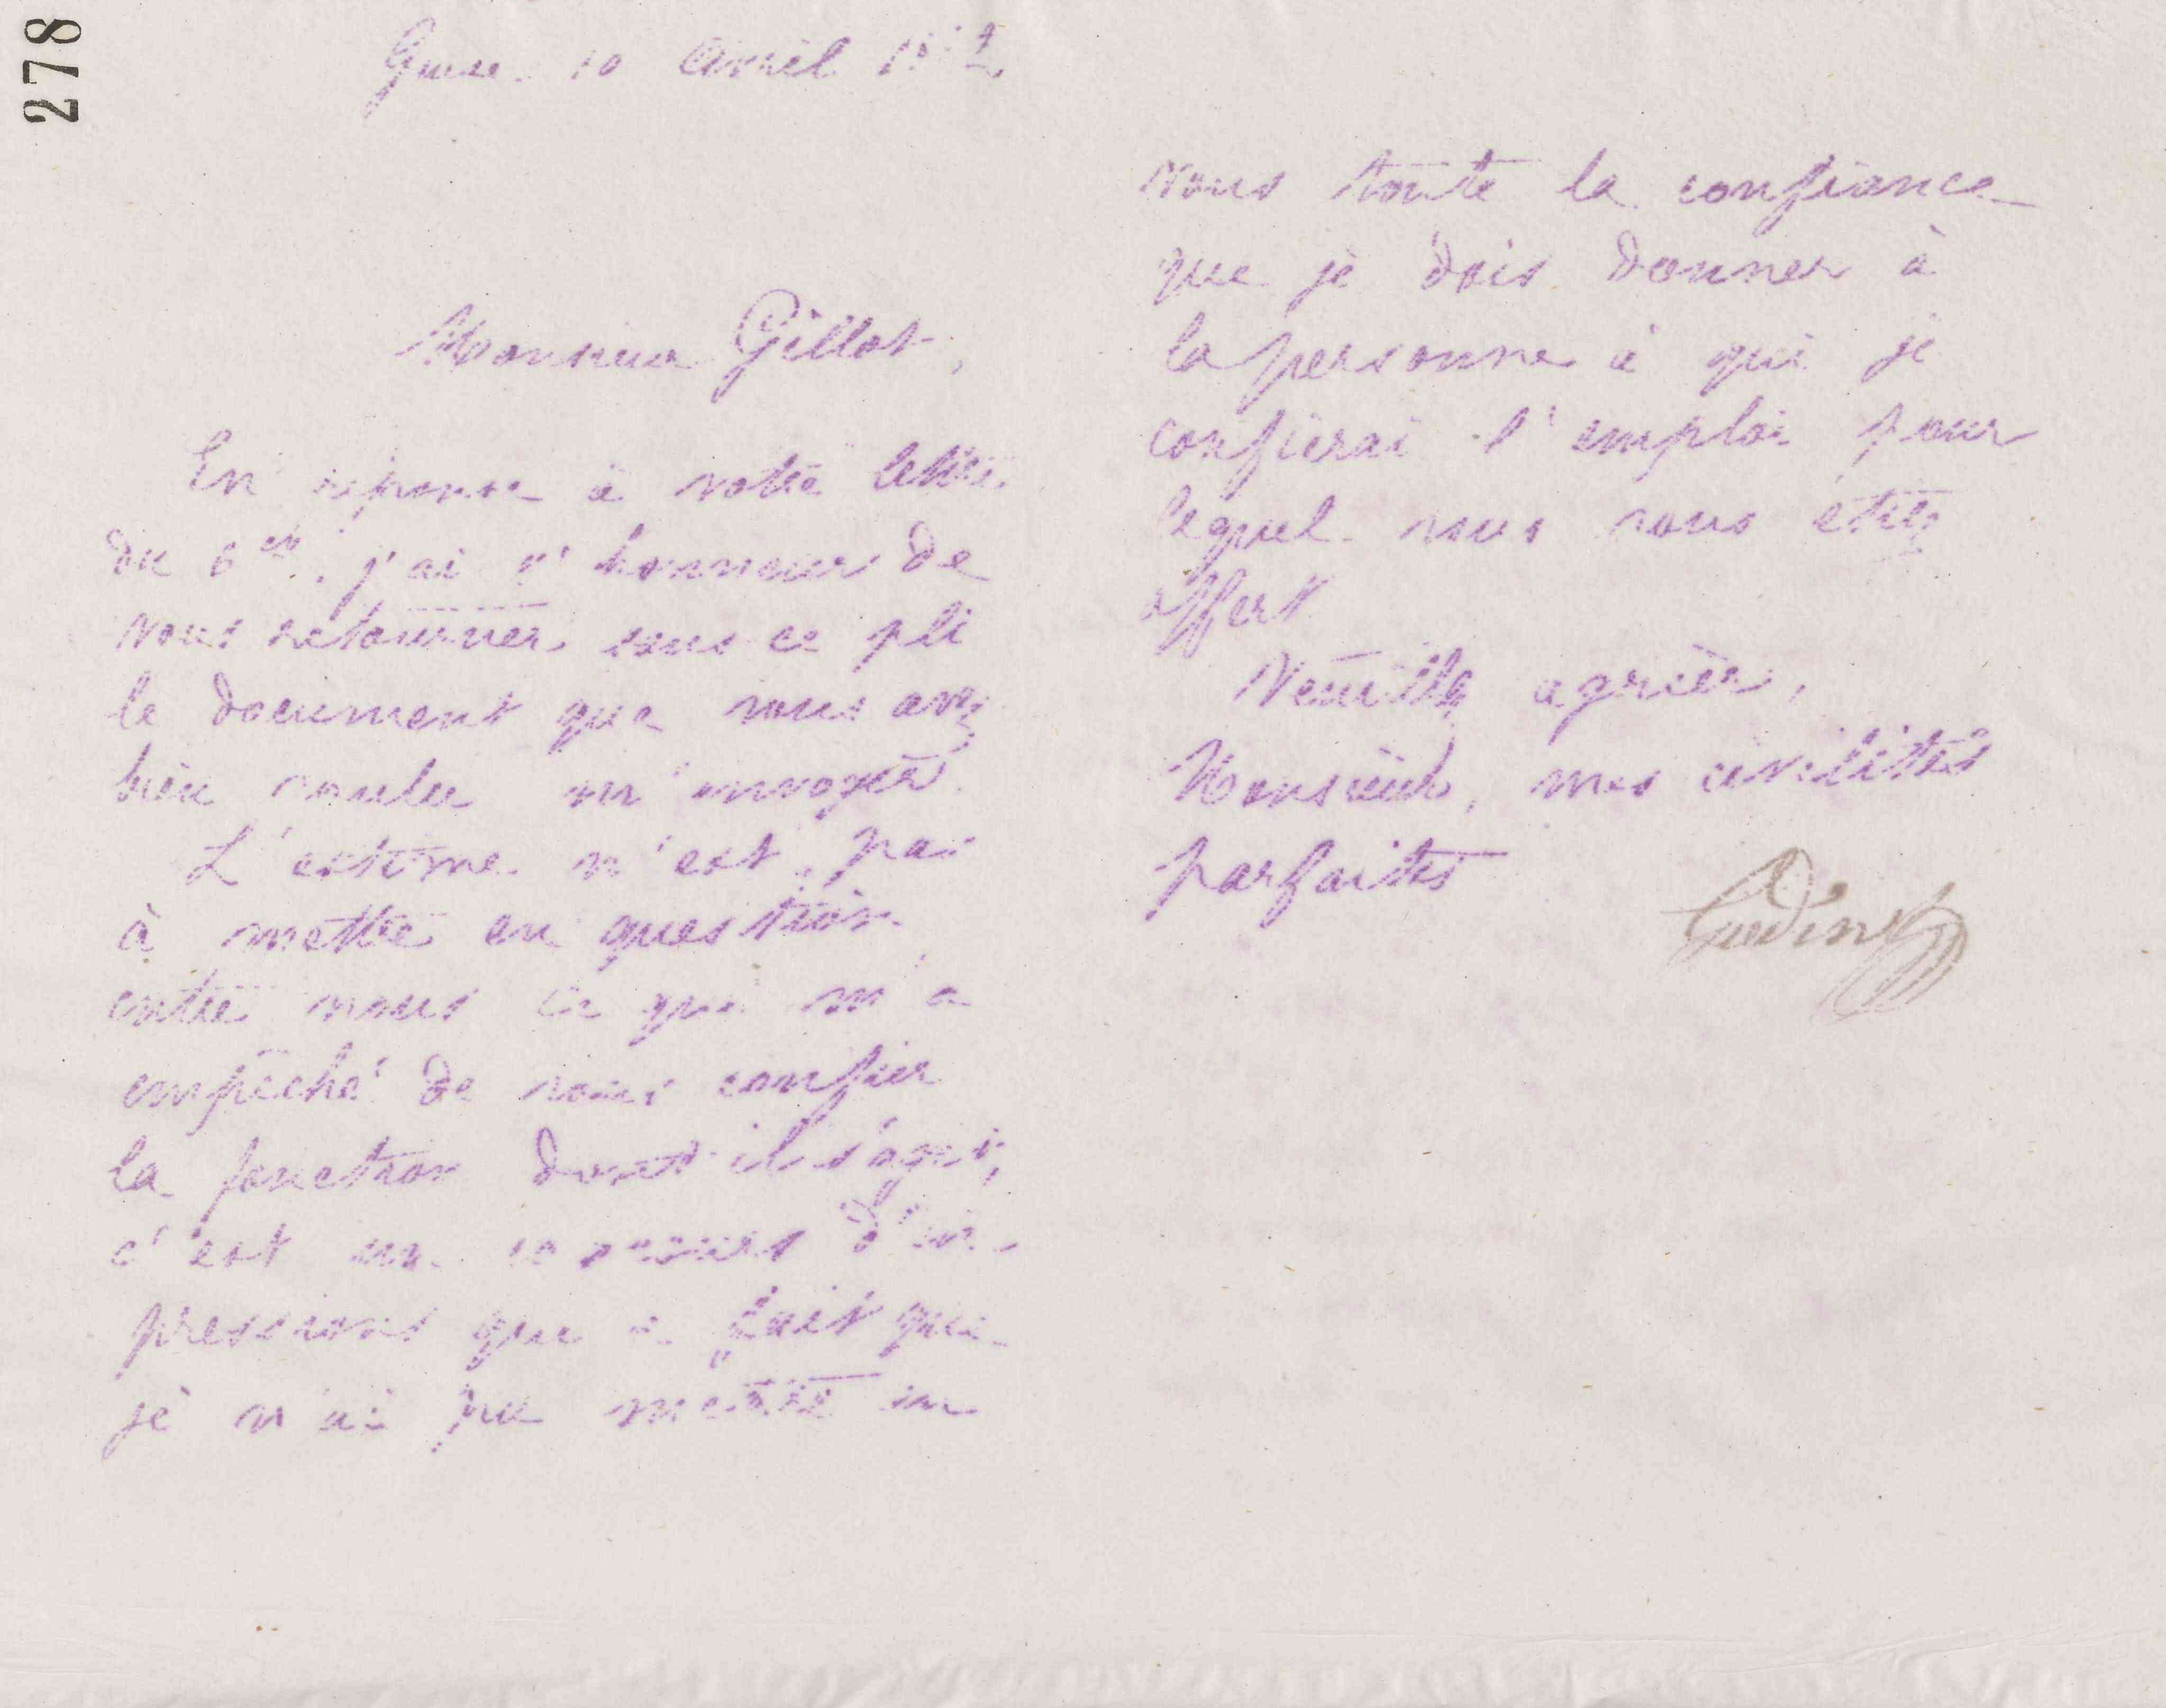 278
Guise 10 Avril
Monsieur Gillot,
En réponse à votre lettre
du 6 ct, j'ai l'honneur de
vous retourner sous ce pli
le document que vous avez
bien voulu m'envoyer.
L'estime n'est pas
à mettre en question
entre nous ce qui m'a
empêché de vous confier
la fonction dont il s'agit,
c'est un concours d'im-
pressions qui a fait que
je n'ai pu mettre en
vous toute la confiance
que je dois donner à
la personne à qui je
confierai l'emploi pour
lequel vous vous êtes
offert
Veuillez agréer,
Monsieur, mes civilités
parfaites
Godin